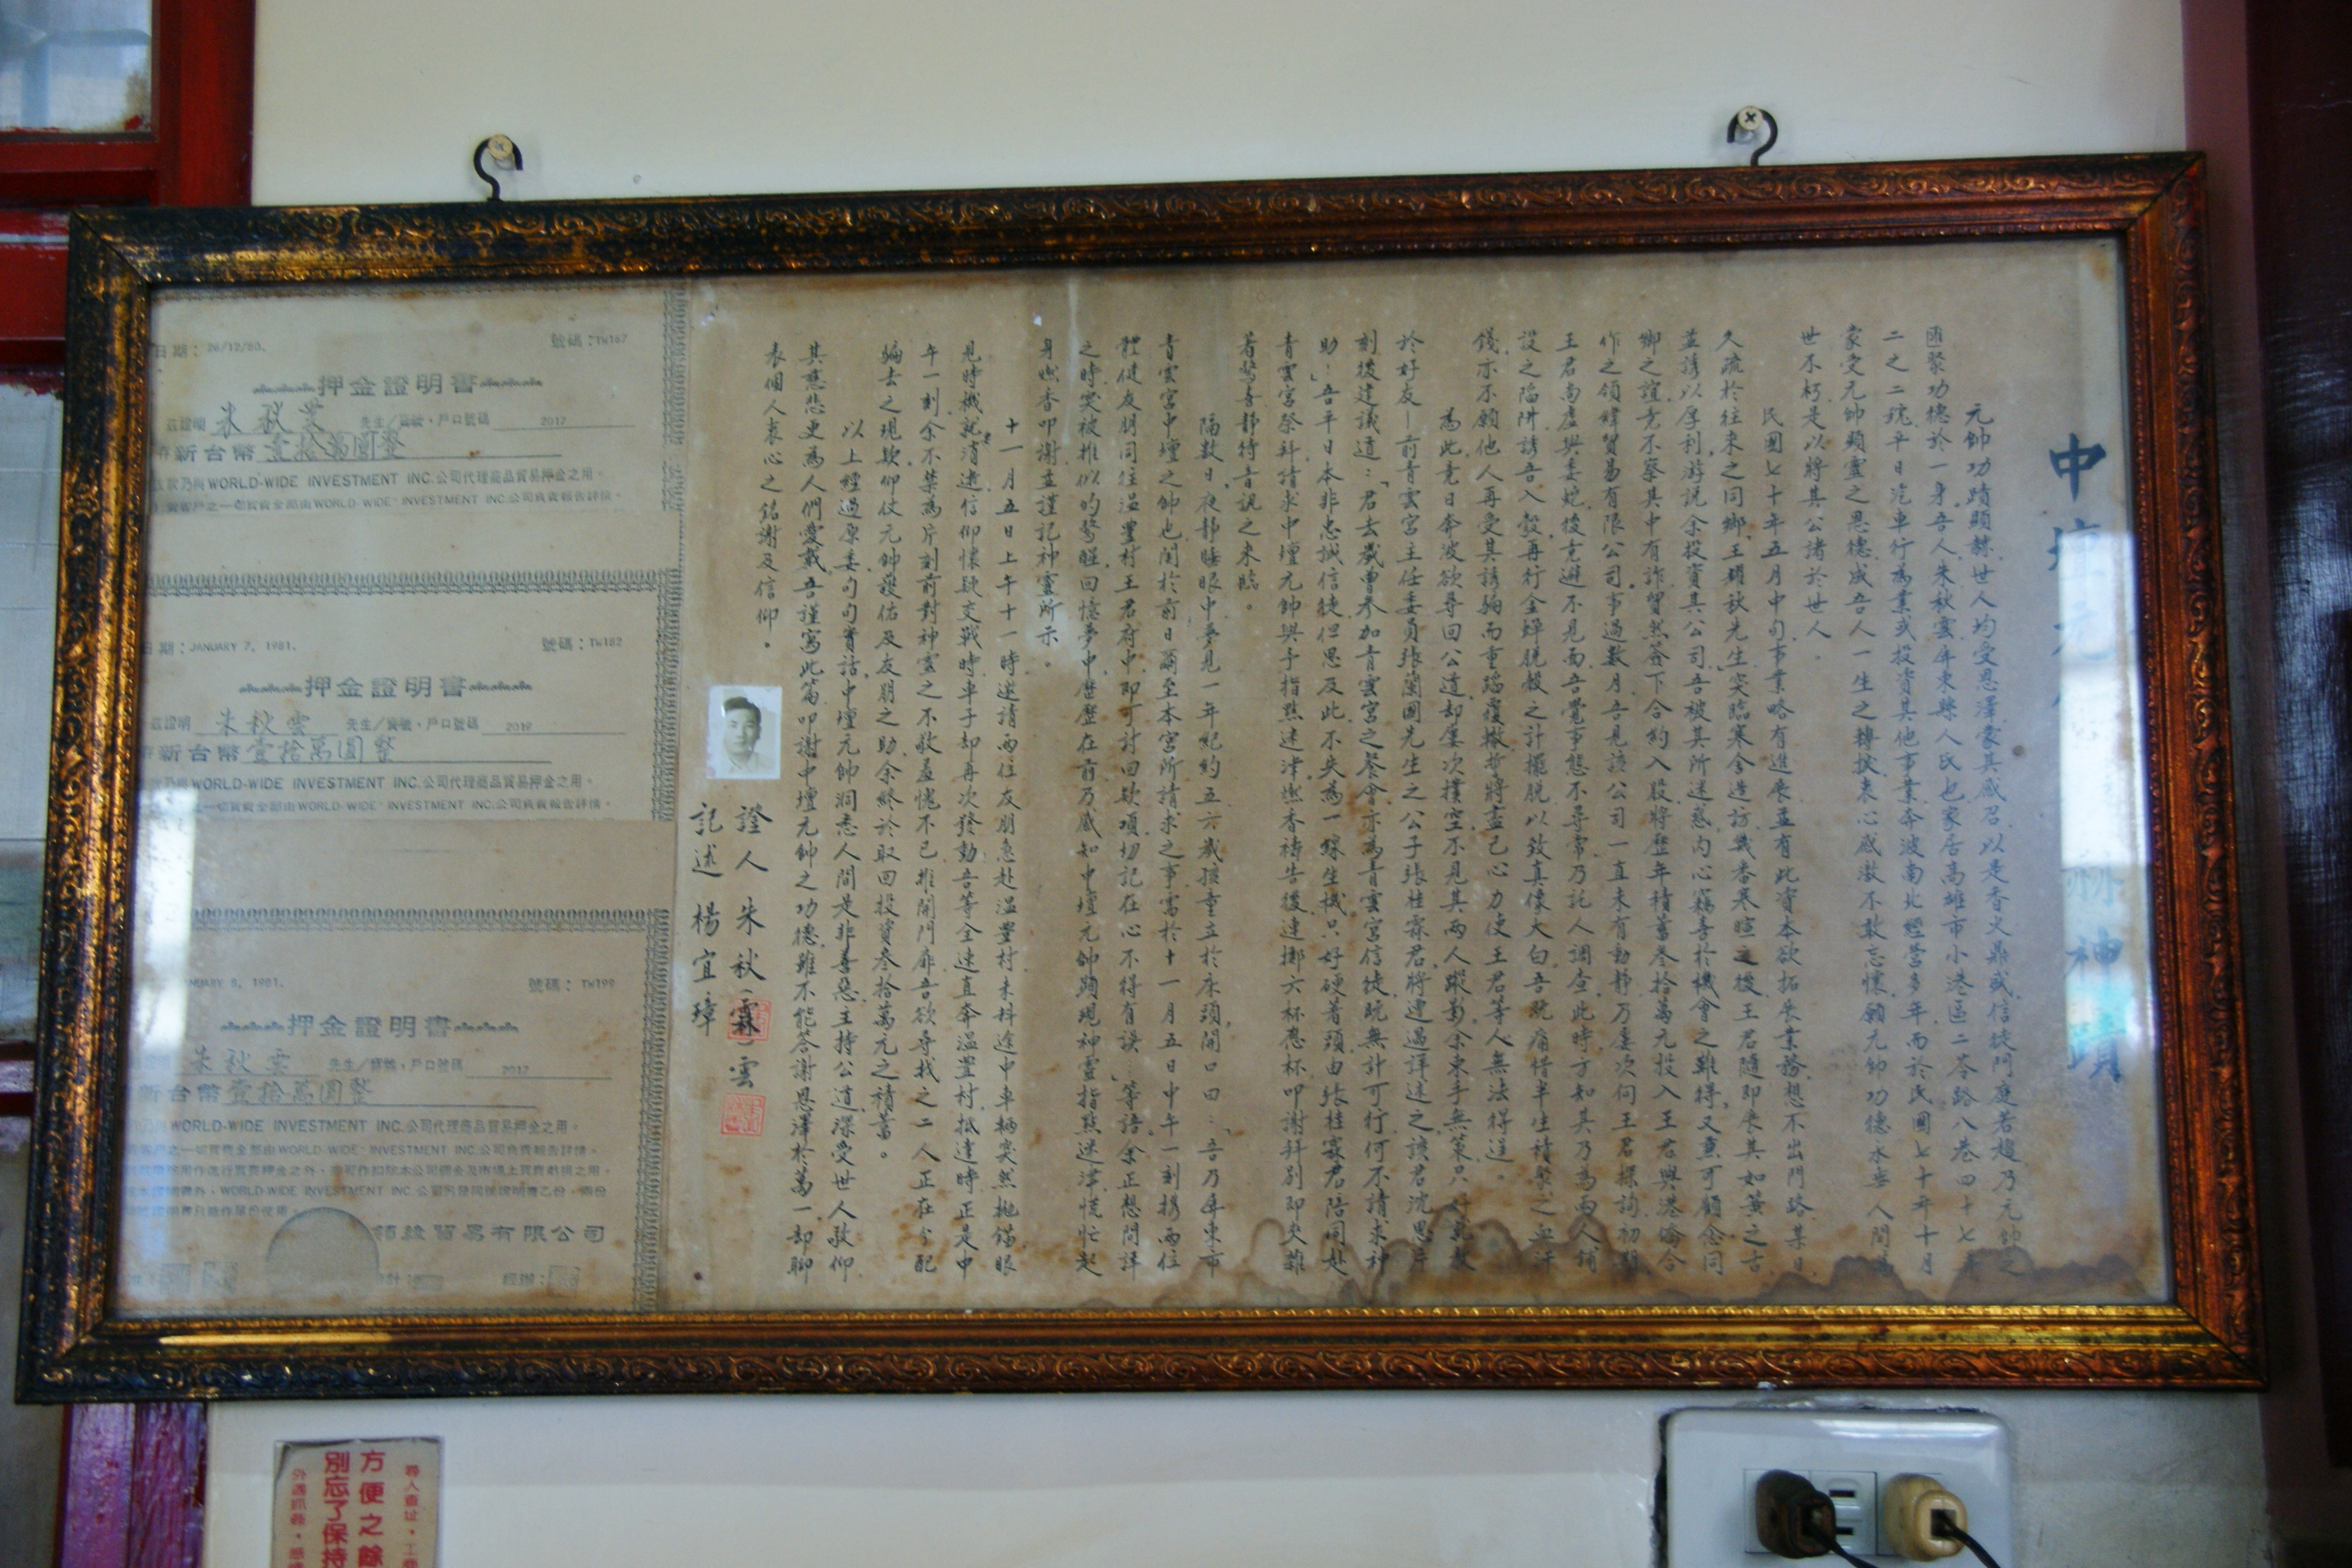 中壇元
神蹟
元帥功蹟顯赫世人均受恩澤蒙其感召以是香火鼎盛信徒門庭若趨乃元帥之
匯聚功德於一身吾人朱秋雲屏東縣人氏也家居高雄市小港區二苓路八巷四十七
二之二號平日汽車行為業或投資其他事業奔波南北經營多年而於民國七十年十月
家受元帥顯靈之恩德成吾人一生之轉捩衷心感激不敢忘懷願元帥功德永垂人間
世不朽是以將其公諸於世人。
民國七十年五月中旬事業略有進展並有此資本欲拓展業務想不出門路某日
久疏於往來之同鄉王順秋先生突臨寒舍造訪幾番寒暄之後王君隨即展其如簧之舌
並誘以厚利游說余投資其公司吾被其所迷惑內心竊喜於機會之難得又熏可顧念同
鄉之誼竟不察其中有詐貿然簽下合約入股將歷年積蓄叁拾萬元投入王君與港僑合
作之領緯貿易有限公司。事過數月吾見該公司一直未有動靜乃屢次向王君探詢初期
王君尚虛與委蛇後竟避不見面吾覺事態不尋常乃託人調查此時方知其乃為兩人鋪
設之陷阱誘吾入彀再行金蟬脫殼之計擺脫以致真像大白吾既痛惜半生積聚之血汗
錢亦不願他人再受其誘騙而重蹈覆撤誓將盡己心力使王君等人無法得逞。
為此竟日奔波欲尋回公道却屢次撲空不見其兩人蹤影余束手無策只好
於好友—前青雲宮主任委員張蘭國先生之公子張桂霖君將遭遇詳述之該君沈思片
刻後建議道：「君去歲曾參加青雲宮之餐會亦為青雲宮信徒既無計可行何不請求神
助」吾平日本非忠誠信徒但思及此不失為一線生機只好硬著頭由張桂霖君陪同赴
青雲宮祭拜請求中壇元帥與予指點迷津燃香禱告後連擲六杯忍杯叩謝拜別即夾雜
著驚喜靜待音訊之來臨。
隔數日夜靜睡眼中夢見一年紀約五六歲孩童立於床頭開口曰：「吾乃屏東市
青雲宮中壇之帥也關於前日爾至本宮所請求之事需於十一月五日中午一刻携兩位
體健友朋同往溫豐村王君府中即可討回欵項切記在心不得有誤…」等語余正想問詳
之時突被推似的驚醒回憶夢中歷歷在前乃感知中壇元帥顯現神靈指點迷津慌忙起
身燃香叩謝並謹記神靈所示。
十一月五日上午十一時邀請兩位友朋急赴溫豐村未料途中車輛突然拋錨眼
見時機就消逝信仰懷疑交戰時車子却再次發動吾等全速直奔溫豐村抵達時正是中
午一刻余不禁為片刻前對神靈之不敬羞愧不已推開門扉吾欲尋找之二人正在分配
騙去之現欵仰仗元帥庇佑及友朋之助余終於取回投資叁拾萬元之積蓄。
以上經過原委句句實話中壇元帥洞悉人間是非善惡主持公道深受世人敬仰
其慈悲更為人們愛戴吾謹寫此篇叩謝中壇元帥之功德雖不能答謝恩澤於萬一却聊
表個人衷心之銘謝及信仰。
證人朱秋(霖)雲
記述楊宜璋
日期：26/12/80.
號碼：TW167
押金證明書
茲證明 朱秋雲 先生/寶號，戶口號碼 2017
新台幣壹拾萬圓整
款乃與WORLD-WIDE INVESTMENT INC.公司代理商品貿易押金之用。
貴客戶之一切買賣全部由WORLD-WIDE INVESTMENT INC.公司負責報告詳情。
日期：JANUARY 7, 1981.
號碼：TW182
押金證明書
茲證明 朱秋雲 先生/寶號，戶口號碼 2019
新台幣壹拾萬圓整
款乃與WORLD-WIDE INVESTMENT INC.公司代理商品貿易押金之用。
一切買賣全部由WORLD-WIDE INVESTMENT INC.公司負責報告詳情。
8, 1981.
號碼：TW199
押金證明書
朱秋雲 先生/寶號，戶口號碼 2017
新台幣壹拾萬圓整
WORLD-WIDE INVESTMENT INC.公司代理商品貿易押金之用。
客戶之一切買賣全部由WORLD-WIDE INVESTMENT INC.公司負責報告詳情。
WORLD-WIDE INVESTMENT INC.公司另發同號證明書乙份，兩份
領緯貿易有限公司
經辦：
尋人查址
方便之餘
別忘了保持
外遇抓姦